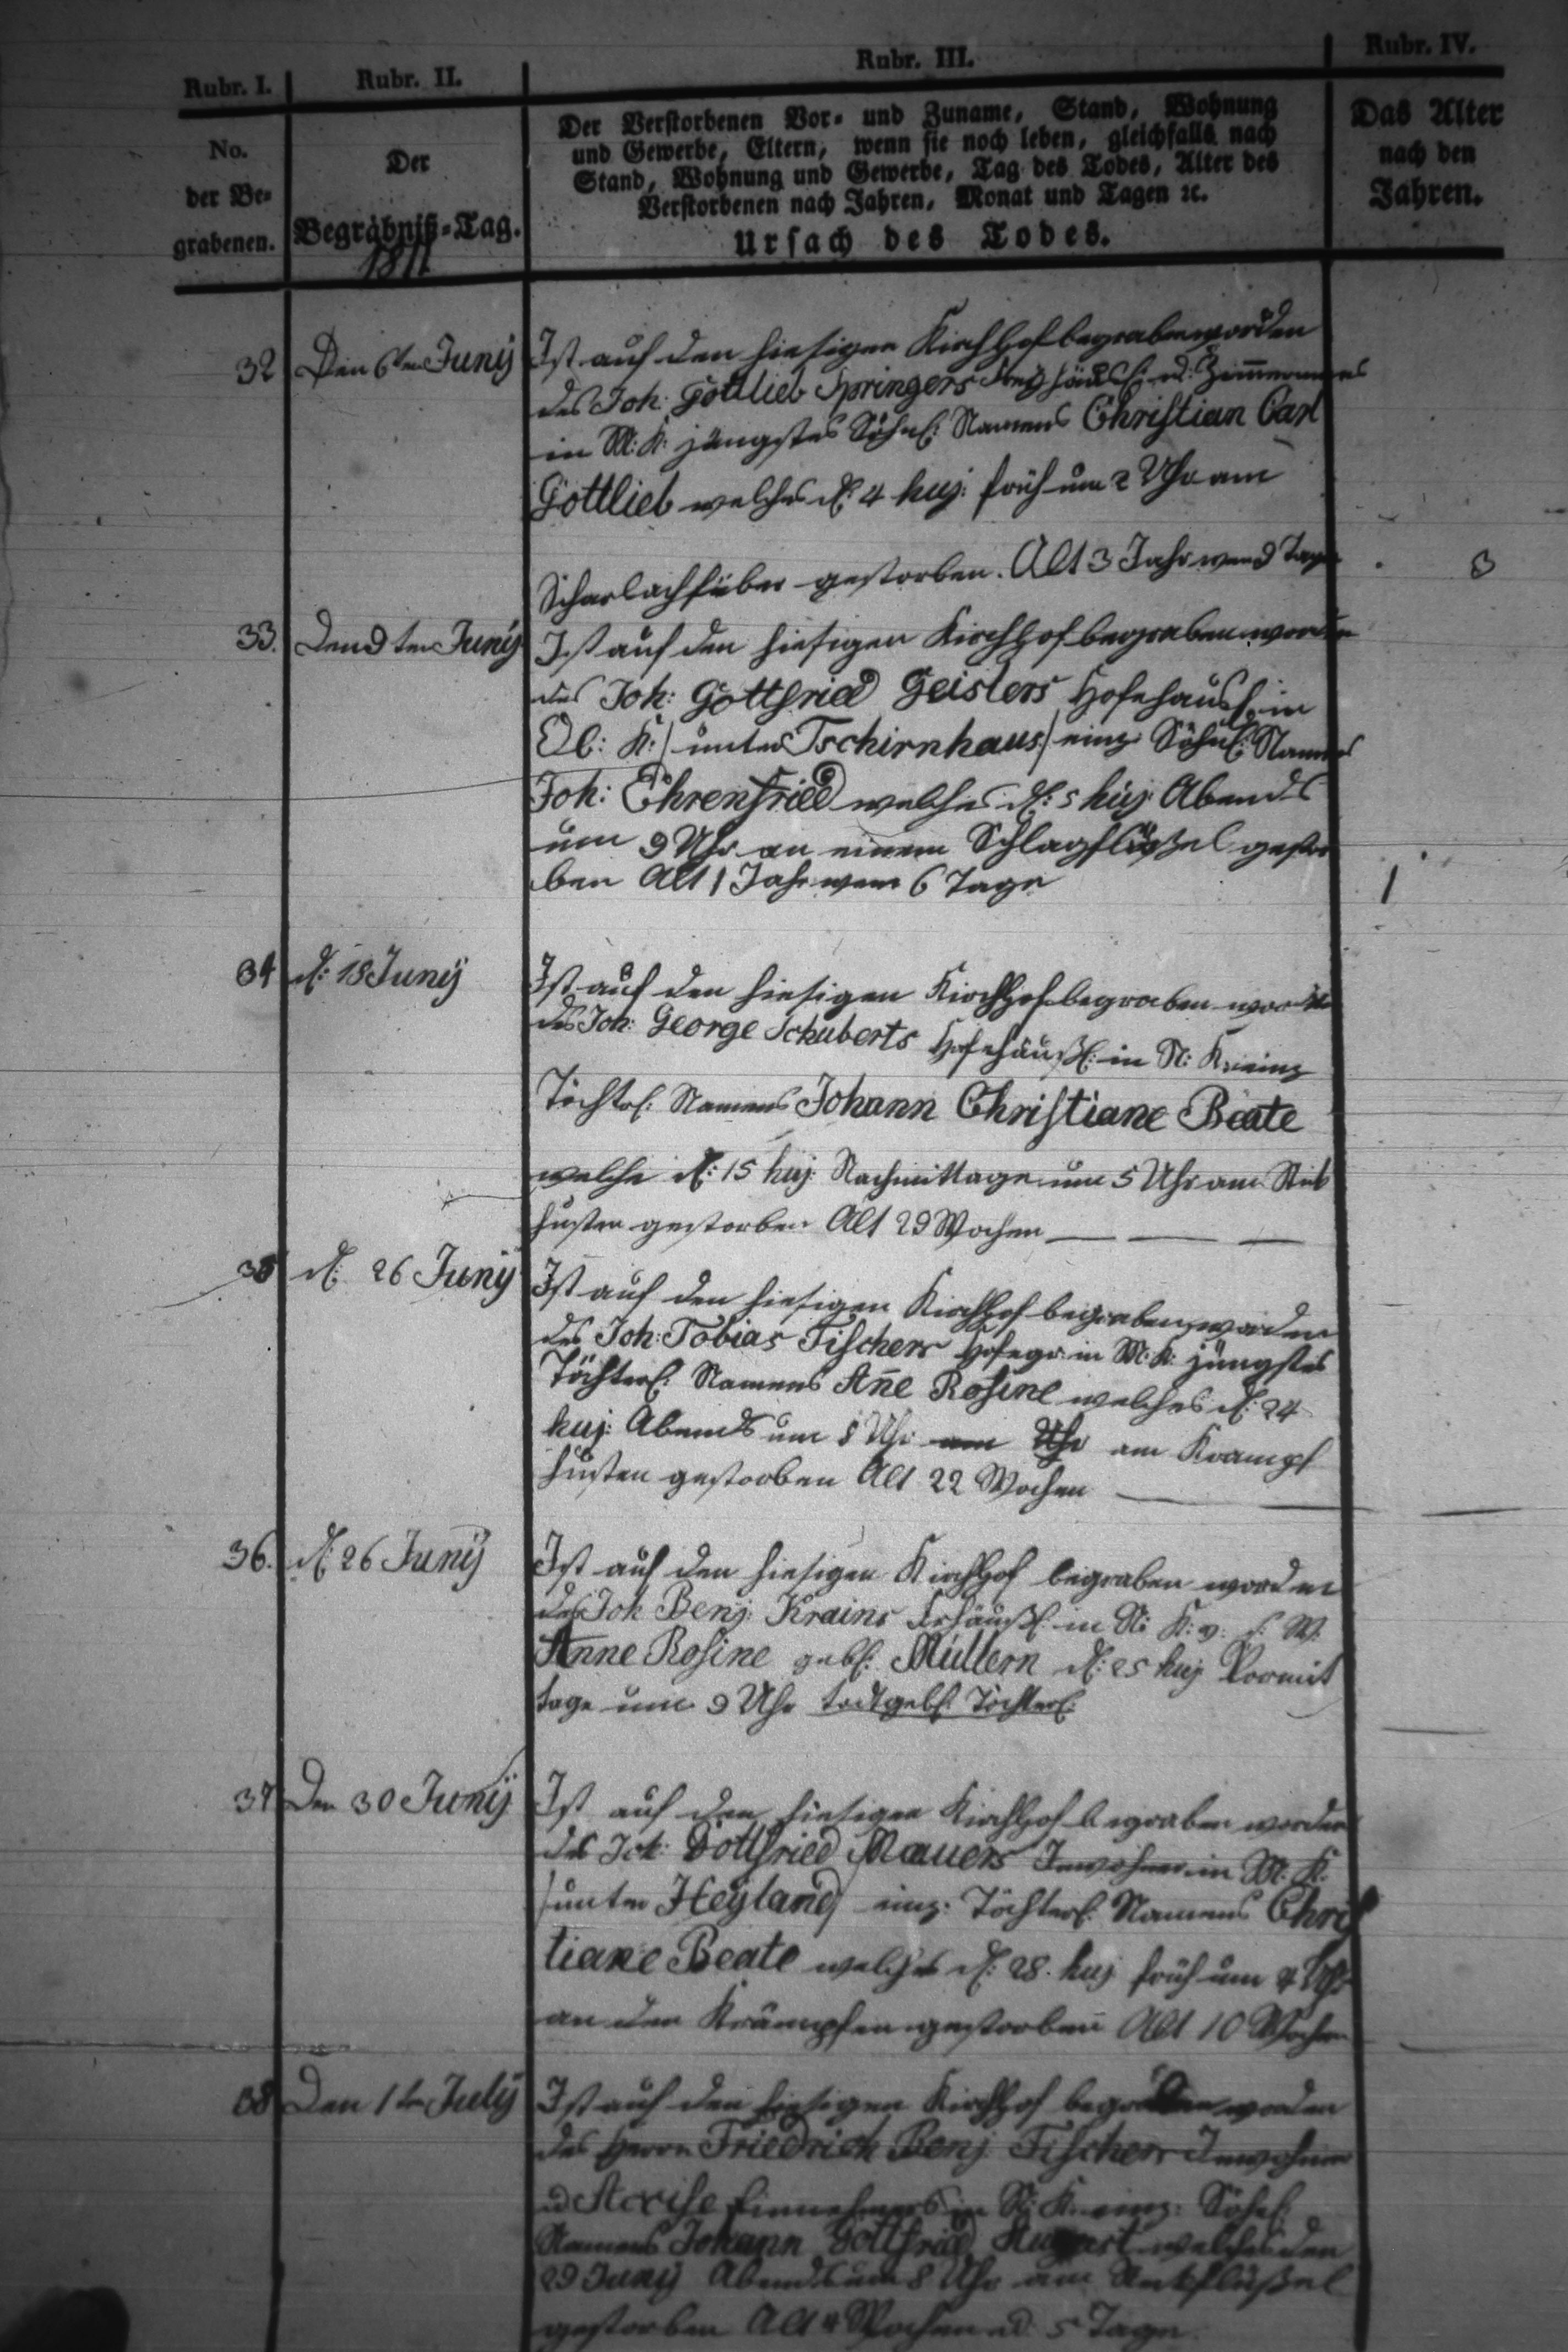 Rubr. I. Rubr. II. Rubr. III. Rubr. IV.
No.
der Be-
grabenen.
Der
Begräbniß-Tag.
1811
Der Verstorbenen Vor- und Zuname, Stand, Wohnung
und Gewerbe, Eltern, wenn sie noch leben, gleichfalls nach
Stand, Wohnung und Gewerbe, Tag des Todes, Alter des
Verstorbenen nach Jahren, Monat und Tagen ꝛc.
Ursach des Todes.
Das Alter
nach den
Jahren.
32 Den 6ten Junÿ Ist auf den hiesigen Kirchhof begraben worden
des Joh: Gottlieb Springers Zimmermanns
in M: K: jüngstes Söhnl: Namens Christian Carl
Gottlieb welches d: 4 huj: früh um 2 Uhr am
Scharlachfieber gestorben. Alt 3 Jahr wen 9 Tage 3
33. Den 9ten Junÿ Ist auf den hiesigen Kirchhof begraben worden
des Joh: Gottfried Geislers Hofehäusl: in
Ob: K: / unter Tschirnhaus / einz: Söhnl: Namens
Joh: Ehrenfried welches d: 5 huj: Abends
um 9 Uhr an einem Schlagflüßel gestor
ben Alt 1 Jahr wen 6 Tage 1
34 d: 18 Junÿ Ist auf den hiesigen Kirchhof begraben worden
des Joh: George Schuberts Hofehäußl: in N: K: einz
Töchterl: Namens Johann Christiane Beate
welche d: 15 huj: Nachmittage um 5 Uhr am Stick
husten gestorben Alt 29 Wochen
35 d: 26 Junÿ Ist auf den hiesigen Kirchhof begraben worden
des Joh: Tobias Fischers Hofegr: in M: K: jüngstes
Töchterl: Namens Añe Rosine welches d: 24
huj: Abends um 8 Uhr am Uhr am Krampf
husten gestorben Alt 22 Wochen
36. d: 26 Junÿ Ist auf den hiesigen Kirchhof begraben worden
des Joh Benj: Krains Frhäußl: in N: K: v: s: W:
Anne Rosine gebh: Müllern d: 25 huj Vormit
tage um 9 Uhr todtgebh: Töchterl:
37 Den 30 Junÿ Ist auf den hiesigen Kirchhof begraben worden
des Joh: Gottfried Mauers Inwohner in M: K:
/ unter Heÿland / einz: Töchterl: Namens Chris
tiane Beate welches d: 28. huj früh um 4 Uhr
an den Krämpfen gestorben Alt 10 Wochen
38 Den 1ten Julÿ Ist auf den hiesigen Kirchhof begraben worden
des Herrn Friedrich Benj: Fischers Inwohner
u Accise Einnehmers in N: K: einz: Söhnl:
Namens Johann Gottfried August welches den
29 Junÿ Abends um 8 Uhr am Steckflüßel
gestorben Alt 4 Wochen u: 5 Tage